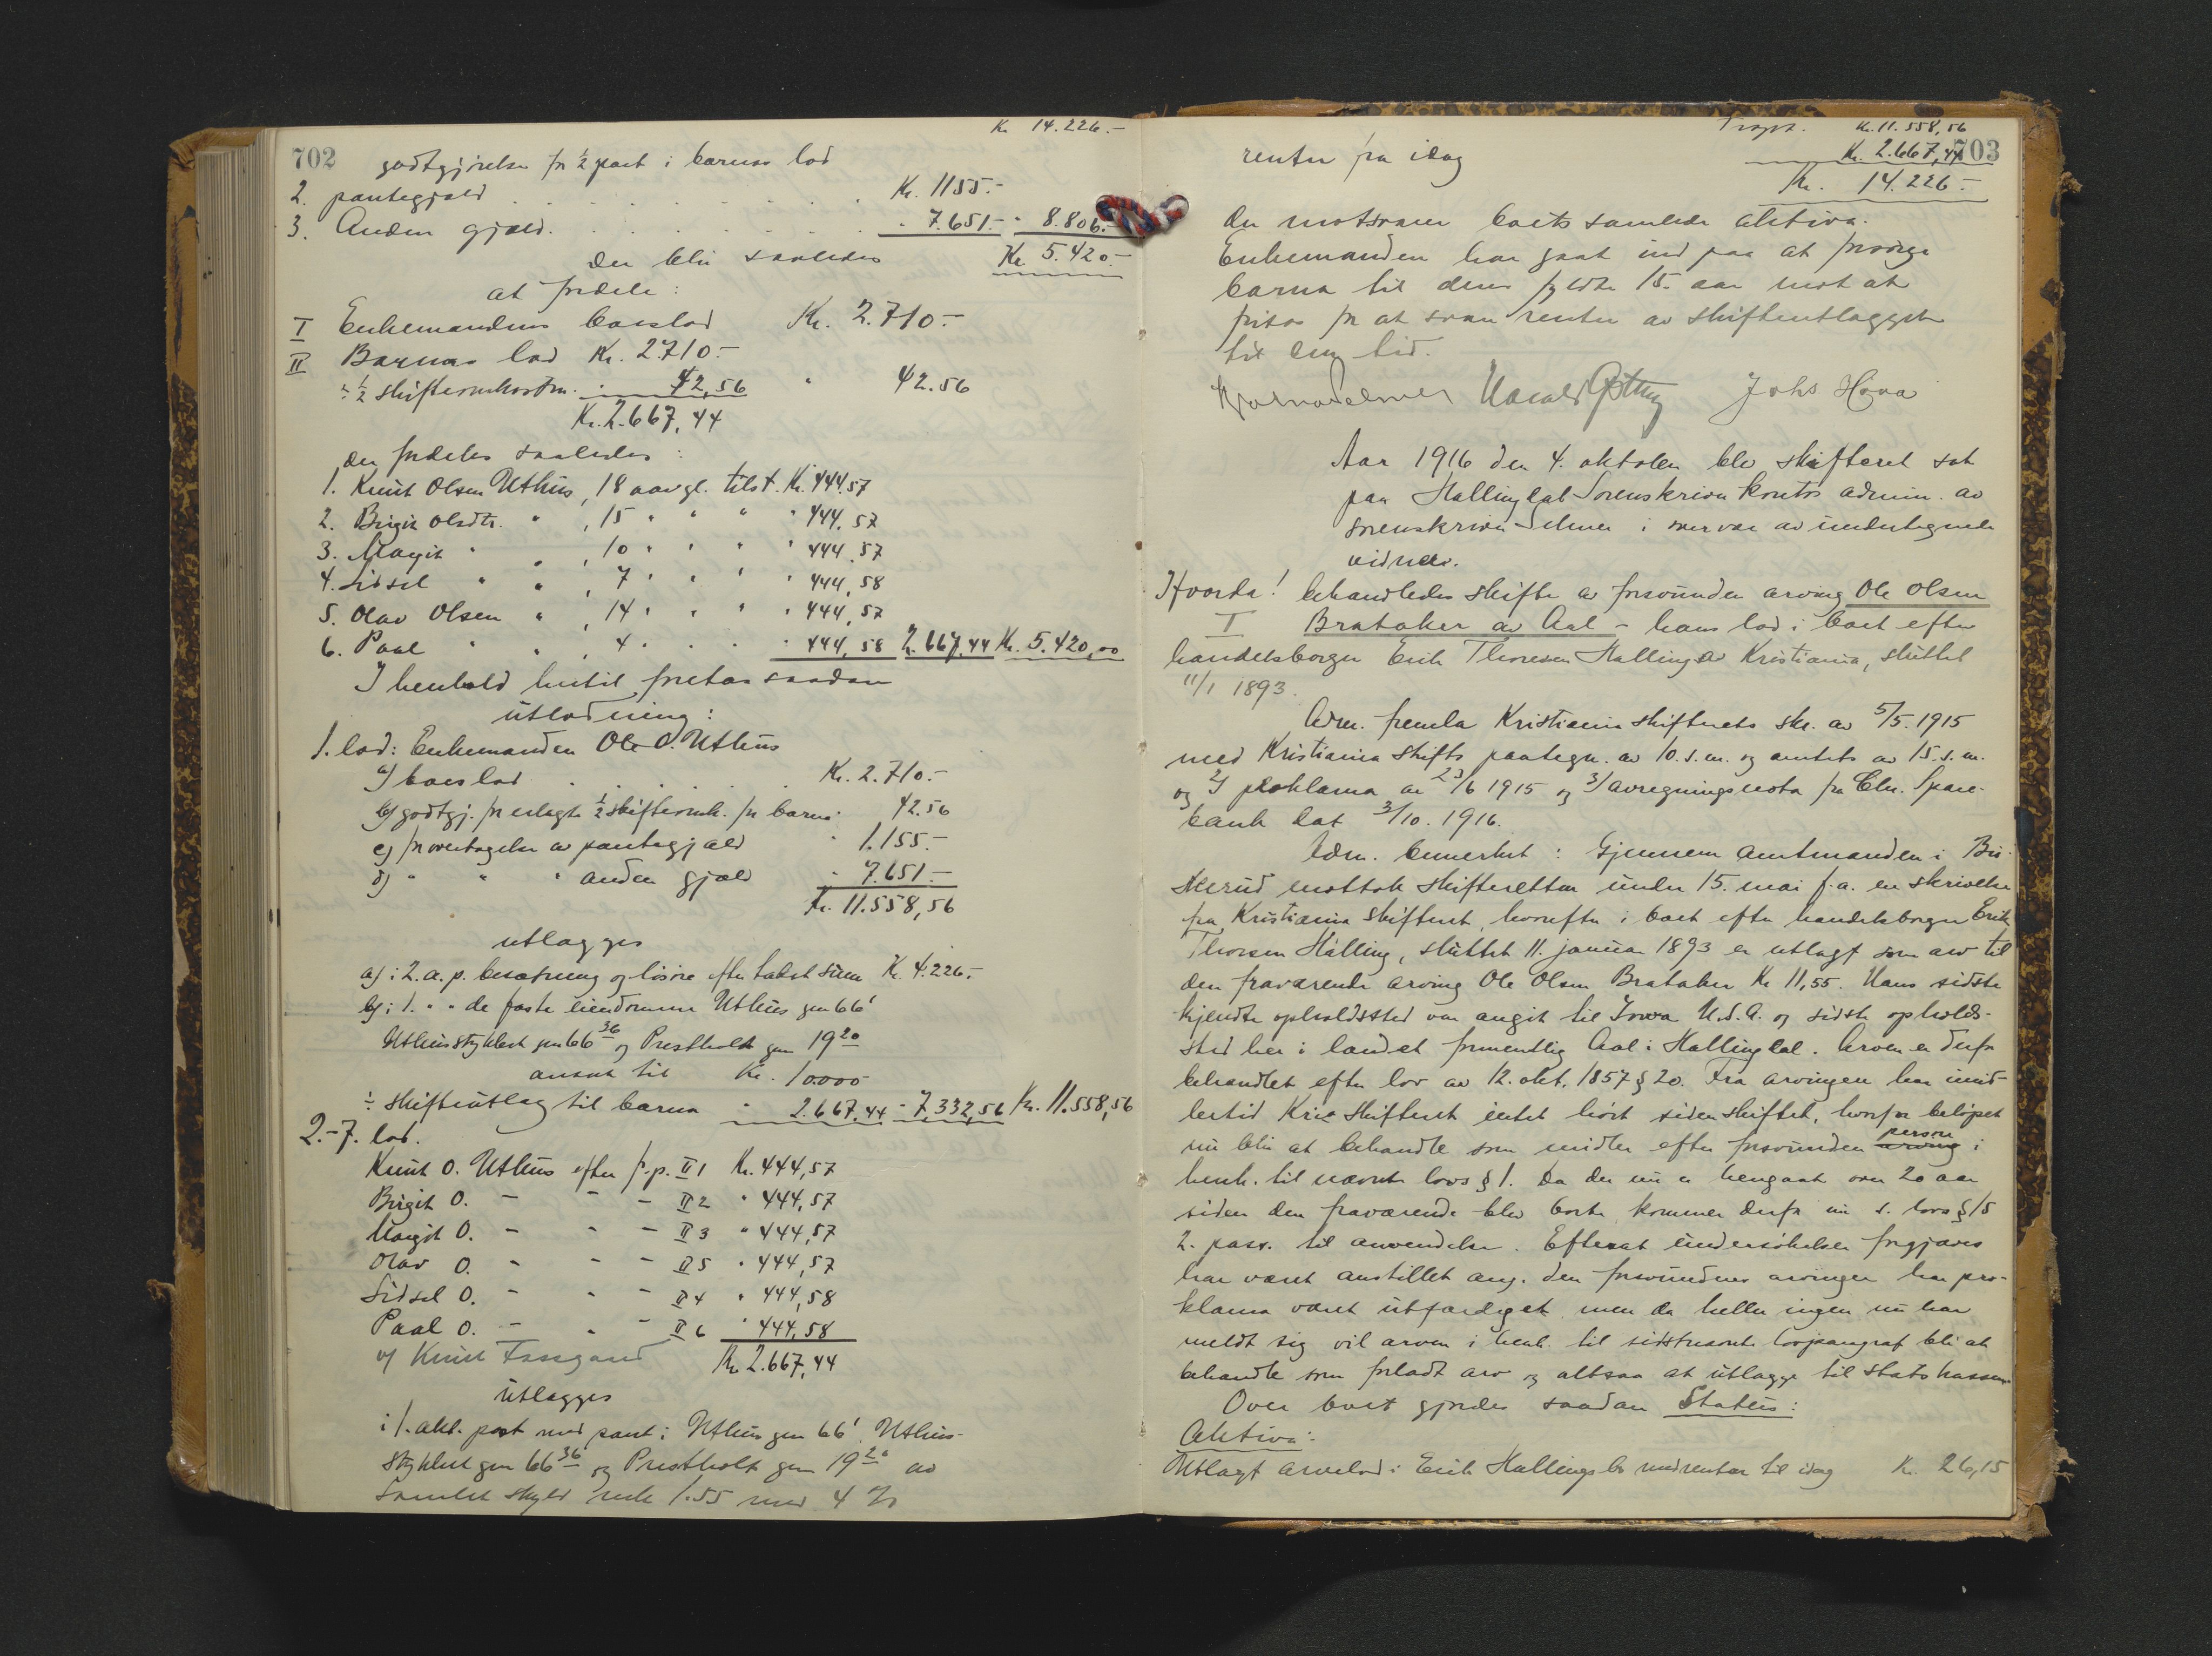 Kr. 14.226.-
702
godtgjörelse for ½ part i barnas lod
2. pantegjæld . . . . . . . Kr. 1155.-
3. Anden gjæld. . . . . . . " 7.651.- " 8.806.-
Der blir saaledes Kr. 5.420.-
at fordele:
I Enkemandens boeslod Kr. 2.710.-
II Barnas lod Kr. 2.710.-
÷ ½ skifteomkostn. " 42,56 " 42.56
Kr. 2.667,44
der fordeles saaledes:
1. Knut Olsen Uthus, 18 aar gl. tilst. Kr. 444.57
2. Birgit Olsdtr. " , 15 " " " " 444.57
3. Margit " " , 10 " " " " 444.57
4. Sidsel " " , 7 " " " " 444,58
5. Olav Olsen " , 14 " " " " 444,57
6. Paal " " , 4 " " " " 444,58 2.667,44 Kr. 5.420,00
I henhold hertil foretas saadan
utlodning:
1. lod: Enkemanden Ole O. Uthus
a) boeslod . . . . . Kr. 2.710.-
b) godtgj. for erlagte ½ skifteomk. for barna " 42.56
c) for overtagelse av pantegjæld " 1.155.-
d) " " " anden gjæld " 7.651.-
Kr. 11.558,56
utlægges
a) i 2. a. p. besætning og lösöre efter takst sum Kr. 4.226.-
b) i 1. " " de faste eiendomme Uthus gnr 66¹
Uthusstykket gnr 66 36 og Prestholt gnr 19 20
ansat til Kr. 10000
÷ skifteutlæg til barna " 2.667,44 " 7.332,56 Kr. 11.558,56
2.-7. lod.
Knut O. Uthus efter f. p. II 1 Kr. 444,57
Birgit O. - - - II 2 " 444,57
Margit O. - - - II 3 " 444,57
Olav O. - - - II 5 " 444,57
Sidsel O. - - - II 4 " 444,58
Paal O. - - - II 6 " 444,58
v/ Knut Kr. 2.667,44
utlægges
i 1. akt. post med pant i Uthus gnr 66¹, Uthus-
stykket gnr 66 36 og Prestholt gnr 19 20 av
samlet skyld mk 1.55 med 4 %
Transp. Kr. 11.558,56
703
renter fra idag Kr. 2.667,44
Kr. 14.226.-
der motsvarer boets samlede aktiva.
Enkemanden har gaat ind paa at forsörge
barna til deres fyldte 15. aar mot at
fritas for at svare renter av skifteutlægget
til den tid.
Johs Hova
Aar 1916 den 4. oktober blev skifteret sat
paa Hallingdal Sorenskriver kontor admin. av
sorenskriver Selmer i nærvær av undertegnede
vidner.
Hvorda! behandledes skifte av forsvunden arving Ole Olsen
I Brataker av Aal - hans lod i boet efter
handelsborger Erik Thoresen Halling av Kristiania, sluttet
11/1 1893.
Adm. fremla Kristiania skifterets skr. av 5/5. 1915
med Kristiania stifts paategn. av 10. s. m. og amtets av 15. s. m.
og 2) proklama av 23/6 1915 og 3) avregningsnota fra Chr. Spare-
bank dat 3/10. 1916.
Adm. bemerket: Gjennem amtmanden i Bu-
skerud mottok skifteretten under 15. mai f. a. en skrivelse
fra Kristiania skifteret, hvorefter i boet efter handelsborger Erik
Thoresen Halling, sluttet 11. januar 1893 er utlagt som arv til
den fraværende arving Ole Olsen Brataker Kr 11,55. Hans sidste
kjendte opholdssted var angit til Iowa U.S.A. og sidste opholds-
sted her i landet formentlig Aal i Hallingdal. Arven er derfor
behandlet efter lov av 12. okt. 1857 § 20. Fra arvingen har imid-
lertid Kr.a skifteret intet hört siden skiftet, hvorfor belöpet
nu blir at behandle som midler efter forsvunden arving person i
henh. til nævnte lovs § 1. Da der nu er hengaat over 20 aar
siden den fraværende blev borte kommer derfor nu s. lovs § 15
2. pass. til anvendelse. Efterat undersökelser forgjæves
har været anstillet ang. den forsvundnes arvinger har pro-
klama været utfærdiget men da heller ingen nu har
meldt sig vil arven i henh. til sistnævnte lovparagraf bli at
behandle som forladt arv og altsaa at utlægge til statskassen.
Over boet gjordes saadan Status:
Aktiva:
Utlagt arvelod i Erik Hallings bo med renter til idag Kr. 26,15